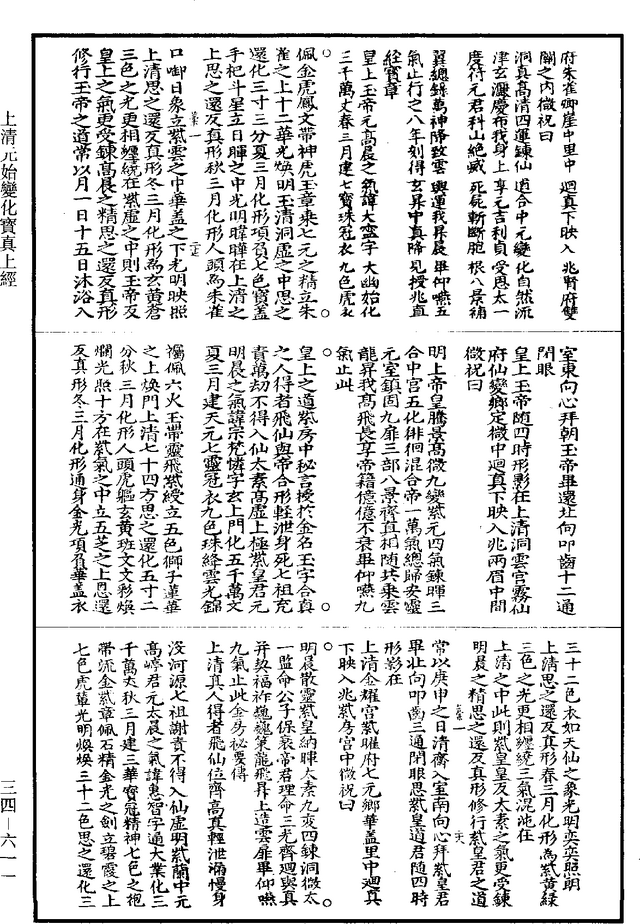 府朱雀鄉崖中里中 迴真下映入 兆腎府雙
關之内微祝曰
洞真高清四運鍊仙 道合中元變化自然流
津玄瀰慶布我身上 享元吉利貞受恩太一
度符元君科山絶滅 死屍斬斷胞 根八景補
翼總錄萬神降致雲 輿運我昇晨畢仰嚥五
氣止行之八年刻得 玄昇中真降 見授兆直
經寶章
皇上玉帝元高晨之氣諱大靈字 大幽始化
三千萬丈春三月建七寶珠冠衣九色虎衣
佩金虎鳳文帶神虎玉章乘七元之精立朱
雀之上十二華光煥明玉清洞虛之中思之
還化三寸三分夏三月化形項負七色寶蓋
手把斗星立日暉之中光明暐暐在上清之
上思之還反真形秋三月化形人頭為朱雀
口啣日象立紫雲之中華蓋之下光明映照
上清思之還反真形冬三月化形為玄黃蒼
三色之光更相纏繞在紫虛之中則玉帝反
皇上之氣更受鍊高晨之精思之還反真形
修行玉帝之道常以月一日十五日沐浴入
室東向心拜朝玉帝畢還北向叩齒十二通
閉眼
皇上玉帝隨四時形影在上清洞雲宮霧仙
府仙變鄉定微中迴真下映入兆兩眉中間
微祝曰
明上帝皇騰景高微九變紫元四氣鍊暉三
合中宮五化徘徊混合帝一萬氣總歸安靈
元室鎮固九扉三部八景齊真相隨共乘雲
龍昇我高飛長享帝籍億億不衰畢仰嚥九
氣止此
皇上之道紫房中秘言授於金名玉字合真
之人得者飛仙與帝合形輕泄身死七祖充
責萬劫不得入仙太素高虛上極紫皇君元
明晨之氣諱宗梵憐字玄上門化五千萬丈
夏三月建天元七靈冠衣九色珠絳雲光錦
襡佩六火玉帶靈飛紫綬立五色獅子蓮華
之上煥門上清七十四方思之還化五寸二
分秋三月化形人頭虎軀玄黃班文文彩煥
爛光照十方在紫氣之中立五芝之上思還
反真形冬三月化形通身金光項負華蓋衣
三十二色衣如天仙之象光明奕奕照朝
上清思之還反真形春三月化形為紫黃綠
三色之光更相纏繞三氣混沌在
上清之中此則紫皇反太素之氣更受鍊
明晨之精思之還反真形修行紫皇君之道
常以庚申之日清齋入室南向心拜紫皇君
畢北向叩齒三通閉眼思紫皇道君隨四時
形影在
上清金耀宮紫曜府七元鄉華蓋里中迴真
下映入兆紫房宮中微祝曰
明晨散靈紫皇納暉太素九変四鍊洞微太
一監命公子保衰帝君理命三光齊迴與真
并契福祚巍巍策龍飛昇上造雲扉畢仰嚥
九氣止此金房祕要傳
上清真人得者飛仙位齊高真輕泄漏慢身
没河源七祖謝責不得入仙虛明紫蘭中元
高崢君元太晨之氣諱惠智字通大業化三
千萬丈秋三月建三華寶冠精神七色之袍
帶流金紫章佩石精金光之劍立碧霞之上
七色虎輦光明煥煥三十二色思之還化三
上清元始變化寶真上經
三四—六一一